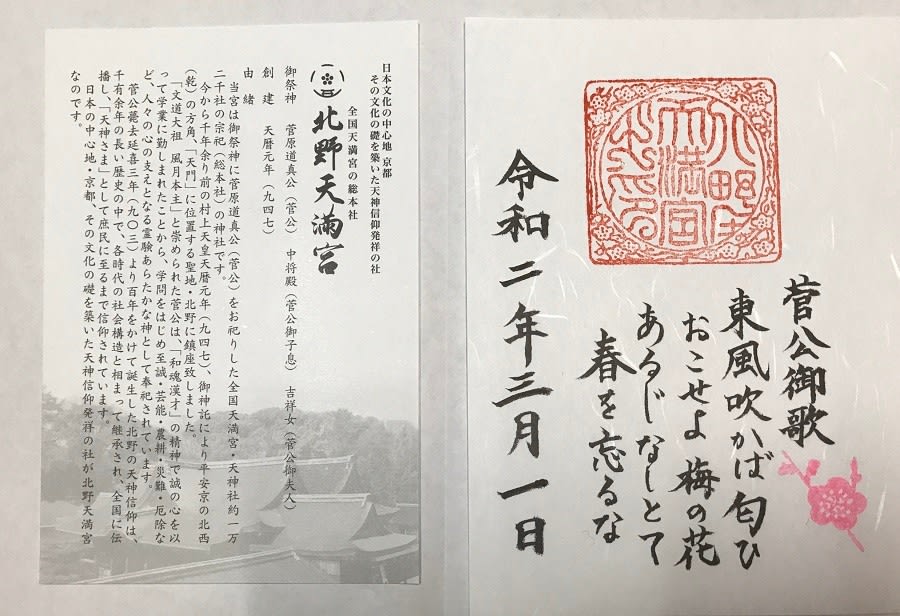 菅公御歌
東風吹かば匂ひ
おこせよ 梅の花
あるじなしとて
春を忘るな
令和二年三月一日
日本文化の中心地 京都
その文化の礎を築いた天神信仰発祥の社
全国天満宮の総本社
北野天満宮
御祭神 菅原道真公（菅公） 中将殿（菅公御子息） 吉祥女（菅公御夫人）
創建 天暦元年（九四七）
由緒
当宮は御祭神に菅原道真公（菅公）をお祀りした全国天満宮・天神社約一万
二千社の宗祀（総本社）の神社です。
今から千年余り前の村上天皇天暦元年（九四七）、御神託により平安京の北西
（乾）の方角、「天門」に位置する聖地・北野に鎮座致しました。
「文道大祖 風月本主」と崇められた菅公は、「和魂漢才」の精神で誠の心を以
って学業に勤しまれたことから、学問をはじめ至誠・芸能・農耕・災難・厄除な
ど、人々の心の支えとなる霊験あらたかな神として奉祀されています。
菅公薨去延喜三年（九〇三）より百年をかけて誕生した北野の天神信仰は、
千有余年の長い歴史の中で、各時代の社会構造と相まって継承され、全国に伝
播し、「天神さま」として庶民に至るまで信仰されています。
日本の中心地・京都、その文化の礎を築いた天神信仰発祥の社が北野天満宮
なのです。